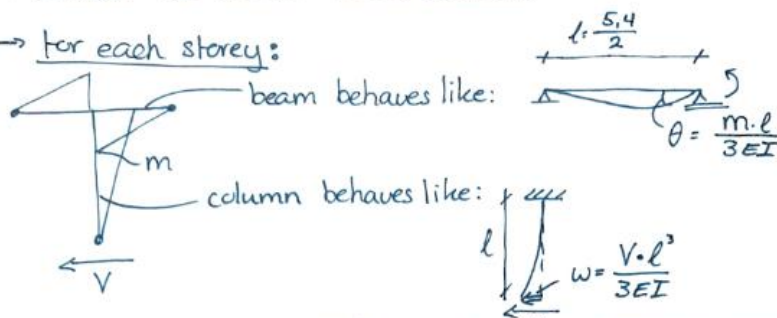 → for each storey:
l = 5,4/2
beam behaves like:
θ = m·l/3EI
m
column behaves like:
l
w = V·l³/3EI
V